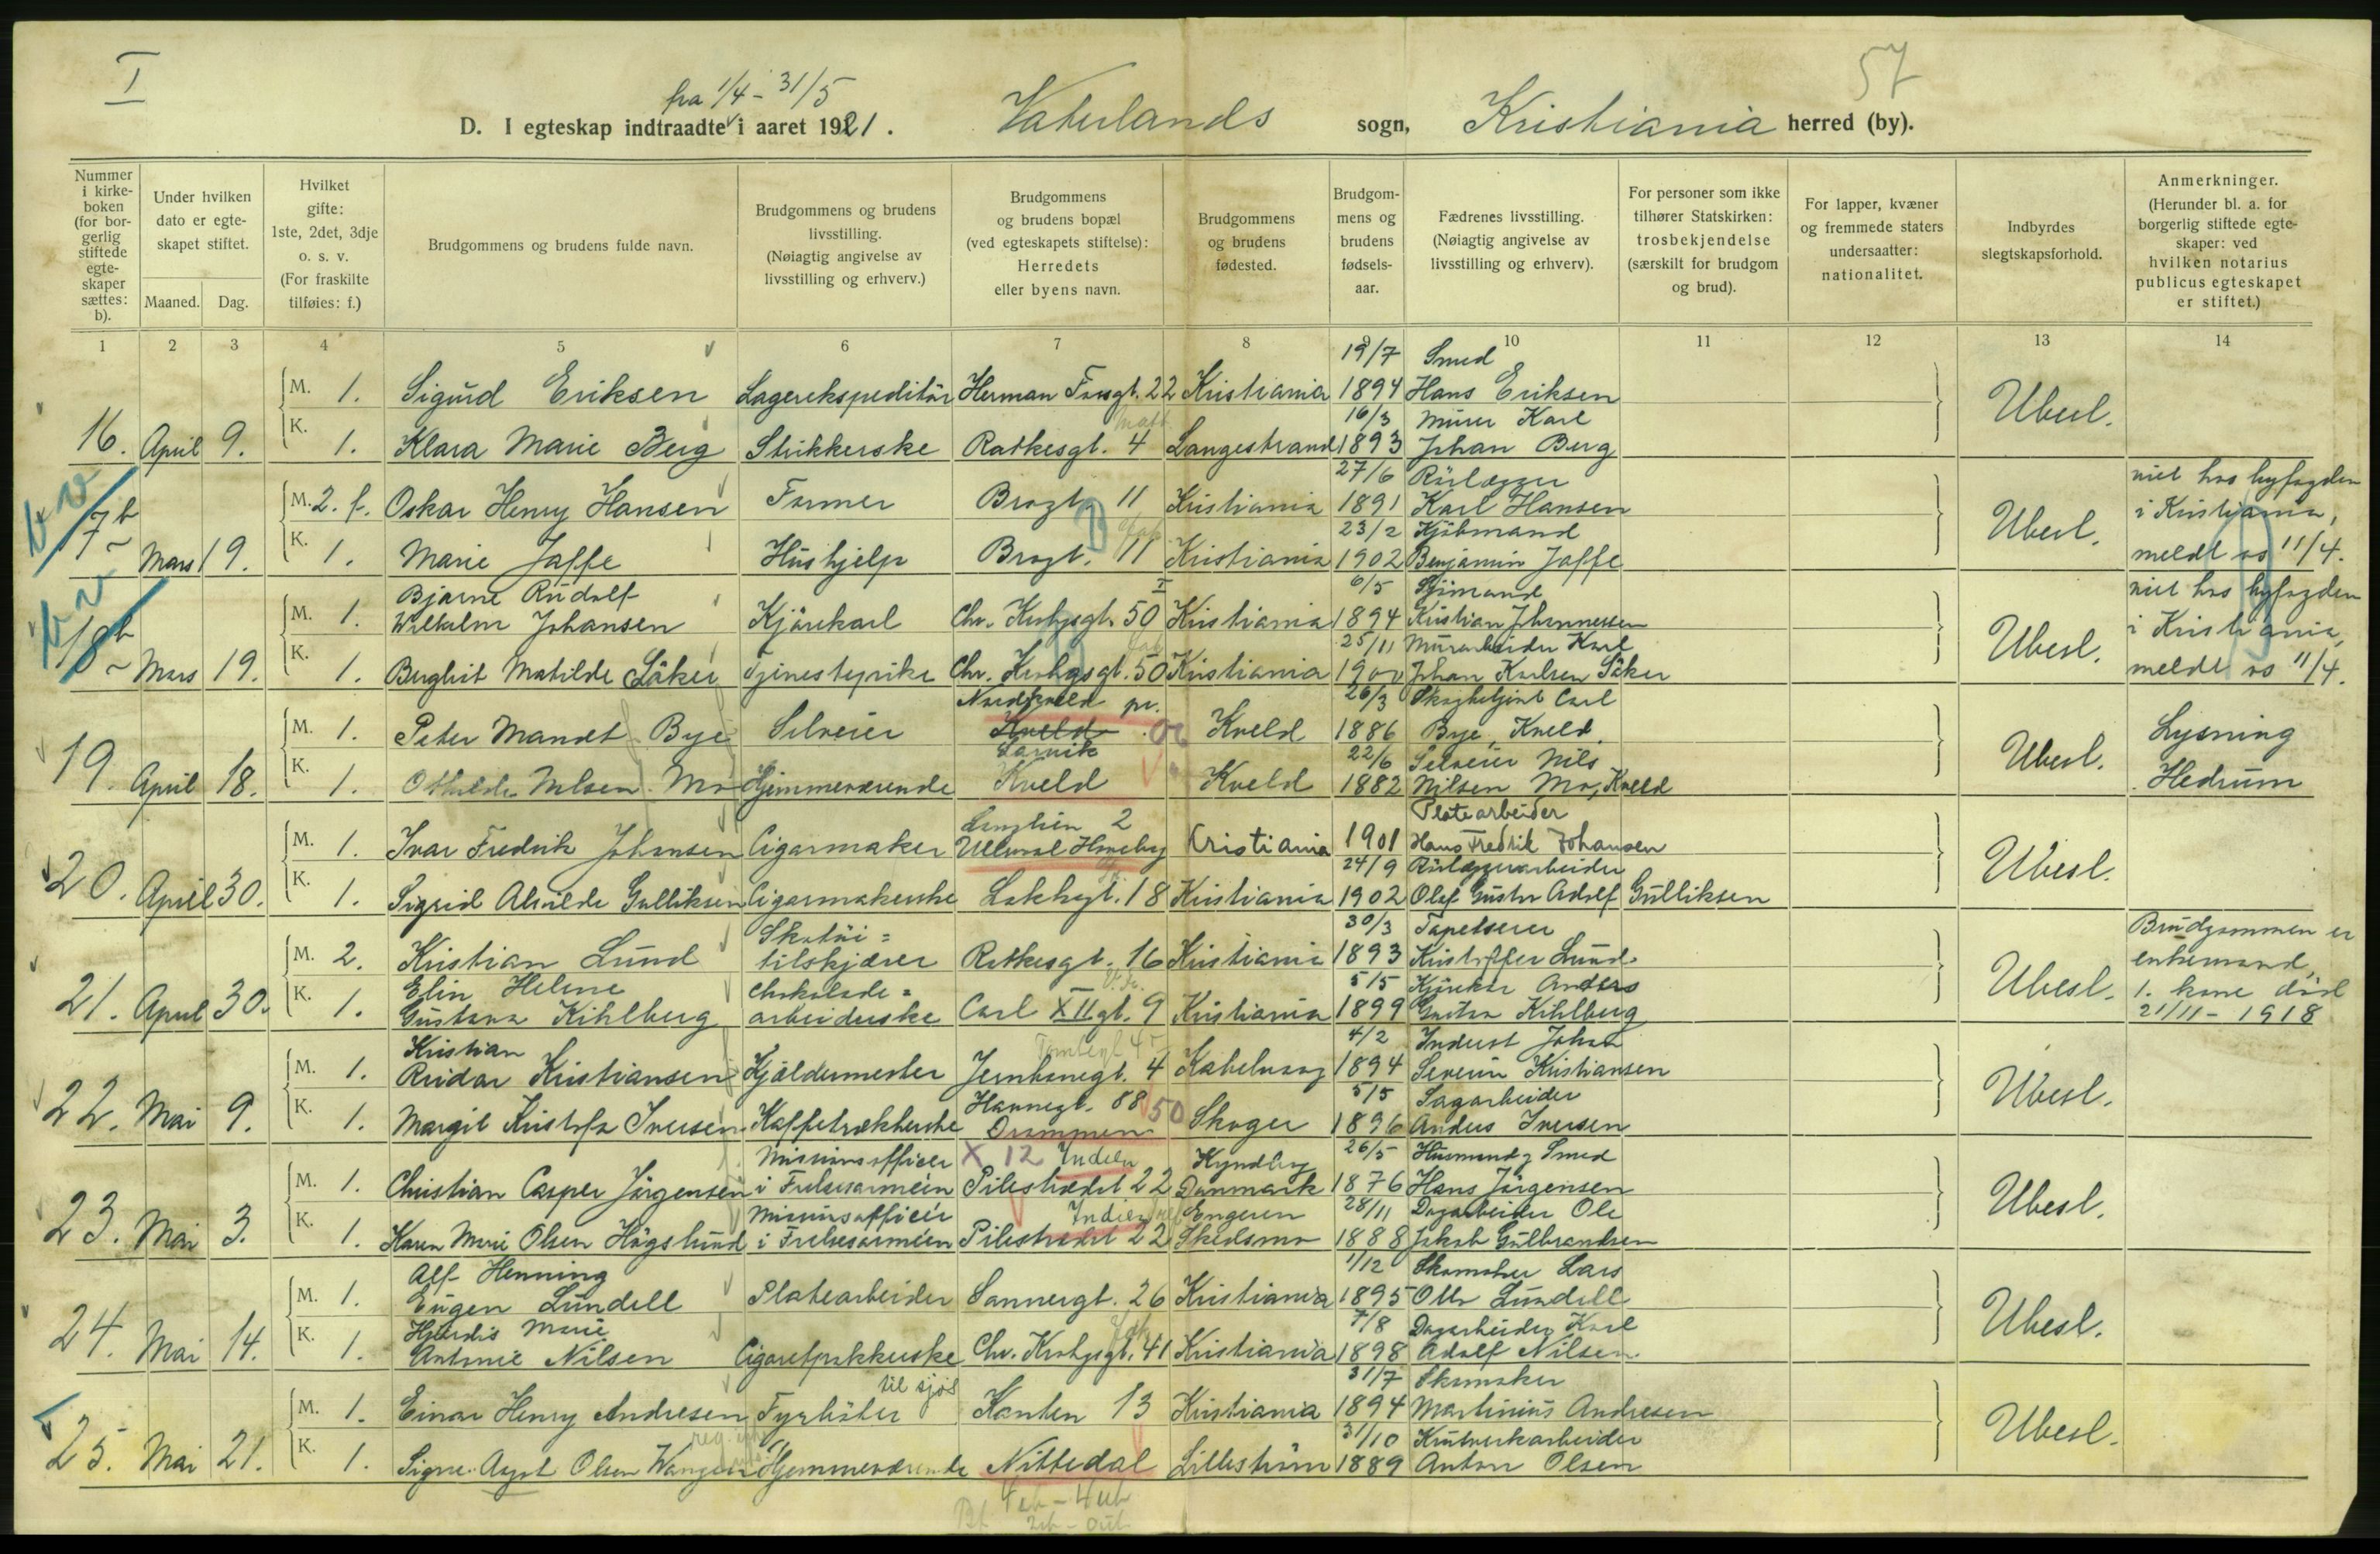 I
fra 1/4 - 31/5
57
D. I egteskap indtraadte i aaret 1921. Vaterlands sogn, Kristiania herred (by).
Nummer i kirke-boken (for bor-gerlig stiftede egte-skaper sættes: b).
Under hvilken dato er egte-skapet stiftet.
Maaned. Dag.
Hvilket gifte: 1ste, 2det, 3dje o. s. v. (For fraskilte tilføies: f.)
Brudgommens og brudens fulde navn.
Brudgommens og brudens livsstilling. (Nøiagtig angivelse av livsstilling og erhverv.)
Brudgommens og brudens bopæl (ved egteskapets stiftelse): Herredets eller byens navn.
Brudgommens og brudens fødested.
Brudgom-mens og brudens fødsels-aar.
Fædrenes livsstilling. (Nøiagtig angivelse av livsstilling og erhverv).
For personer som ikke tilhører Statskirken: trosbekjendelse (særskilt for brudgom og brud).
For lapper, kvæner og fremmede staters undersaatter: nationalitet.
Indbyrdes slegtskapsforhold.
Anmerkninger. (Herunder bl. a. for borgerlig stiftede egte-skaper: ved hvilken notarius publicus egteskapet er stiftet.)
1 2 3 4 5 6 7 8 9 10 11 12 13 14
19/7 Smed
M. 1. Sigurd Eriksen Lagerekspeditör Herman Fossgt. 22 Kristiania 1894 Hans Eriksen Ubesl.
16/3 Murer Karl
16. April 9. K. 1. Klara Marie Berg Strikkerske Ratkesgt. 4 Langestrand 1893 Johan Berg
27/6 Rörlægger
M. 2. f. Oskar Henry Hansen Former Brogt. 11 Kristiania 1891 Karl Hansen Ubesl. viet hos byfogden i Kristiania, meldt os 11/4.
23/2 Kjöbmand
17 b Mars 19. K. 1. Marie Jaffe Hushjelp Brogt. 11 Kristiania 1902 Benjamin Jaffe
Bjarne Rudolf 6/5 Sjömand
M. 1. Wilhelm Johansen Kjörekarl Chr. Krohgsgt. 50 Kristiania 1894 Kristian Johannessen Ubesl. viet hos byfogden i Kristiania, meldt os 11/4.
25/11 Murarbeider Karl
18 b Mars 19. K. 1. Berghit Matilde Säker Tjenestepike Chr. Krohgsgt. 50 Kristiania 1900 Johan Karlsen Säker
Nordkveld pr. 26/3 Carl
M. 1. Peter Mandt Bye Selveier Kveld Larvik Kveld 1886 Bye, Kveld. Ubesl. Lysning Hedrum
22/6 Selveier Nils
19. April 18. K. 1. Othilde Nilsen Mo Hjemmeværende Kveld Kveld 1882 Nilsen Mo, Kveld
2 Platearbeider
M. 1. Ivar Fredrik Johansen Cigarmaker Ullevaal Haveby Kristiania 1901 Hans Fredrik Johansen Ubesl.
24/9 Rörlæggerarbeider
20. April 30. K. 1. Sigrid Alvilde Gulliksen Cigarmakerske Lakkegt. 18 Kristiania 1902 Olaf Gustav Adolf Gulliksen
Skotöi= 30/3 Tapetserer
M. 2. Kristian Lund tilskjærer Ratkesgt. 16 Kristiania 1893 Kristoffer Lund Ubesl. Brudgommen er enkemand, 1. kone död 21/11 - 1918
Elin Helene Chokolade= 5/5 Kjörekar Anders
21. April 30. K. 1. Gustava Kihlberg arbeiderske Carl XII gt. 9 Kristiania 1899 Gustav Kihlberg
Kristian Tomtegt 4/2 Johan
M. 1. Reidar Kristiansen Kjældermester Jernbanegt. 4 Kabelvaag 1894 Severin Kristiansen Ubesl.
Havnegt. 88 50 5/5 Sagarbeider
22. Mai 9. K. 1. Margit Kristofa Iversen Kaffetrækkerske Drammen Skoger 1896 Anders Iversen
Missionsofficer X 12 Indien Kyndby 26/5 Husmand & Smed
M. 1. Christian Casper Jörgensen i Frelsesarmeen Pilestrædet 22 Danmark 1876 Hans Jörgensen Ubesl.
Missionsofficer Indien Engeren 28/11 Dagarbeider Ole
23. Mai 3. K. 1. Karen Marie Olsen Högslund i Frelsesarmeen Pilestrædet 22 Skedsmo 1888 Jakob Gulbrandsen
Alf Henning 1/12 Skomaker Lars
M. 1. Eugen Lundell Platearbeider Sannergt. 26 Kristiania 1895 Otto Lundell Ubesl.
Hjördis Marie 7/8 Dagarbeider Karl
24. Mai 14. K. 1. Antonie Nilsen Cigaretpakkerske Chr. Krohgsgt. 41 Kristiania 1898 Adolf Nilsen
til sjös 31/7 Skomaker
M. 1. Einar Henry Andresen Fyrböter Kanten 13 Kristiania 1894 Martinius Andresen Ubesl.
31/10 Krutverkarbeider
25. Mai 21. K. 1. Signe Aagot Olsen Wangen Hjemmeværende Nittedal Lilleström 1889 Anton Olsen